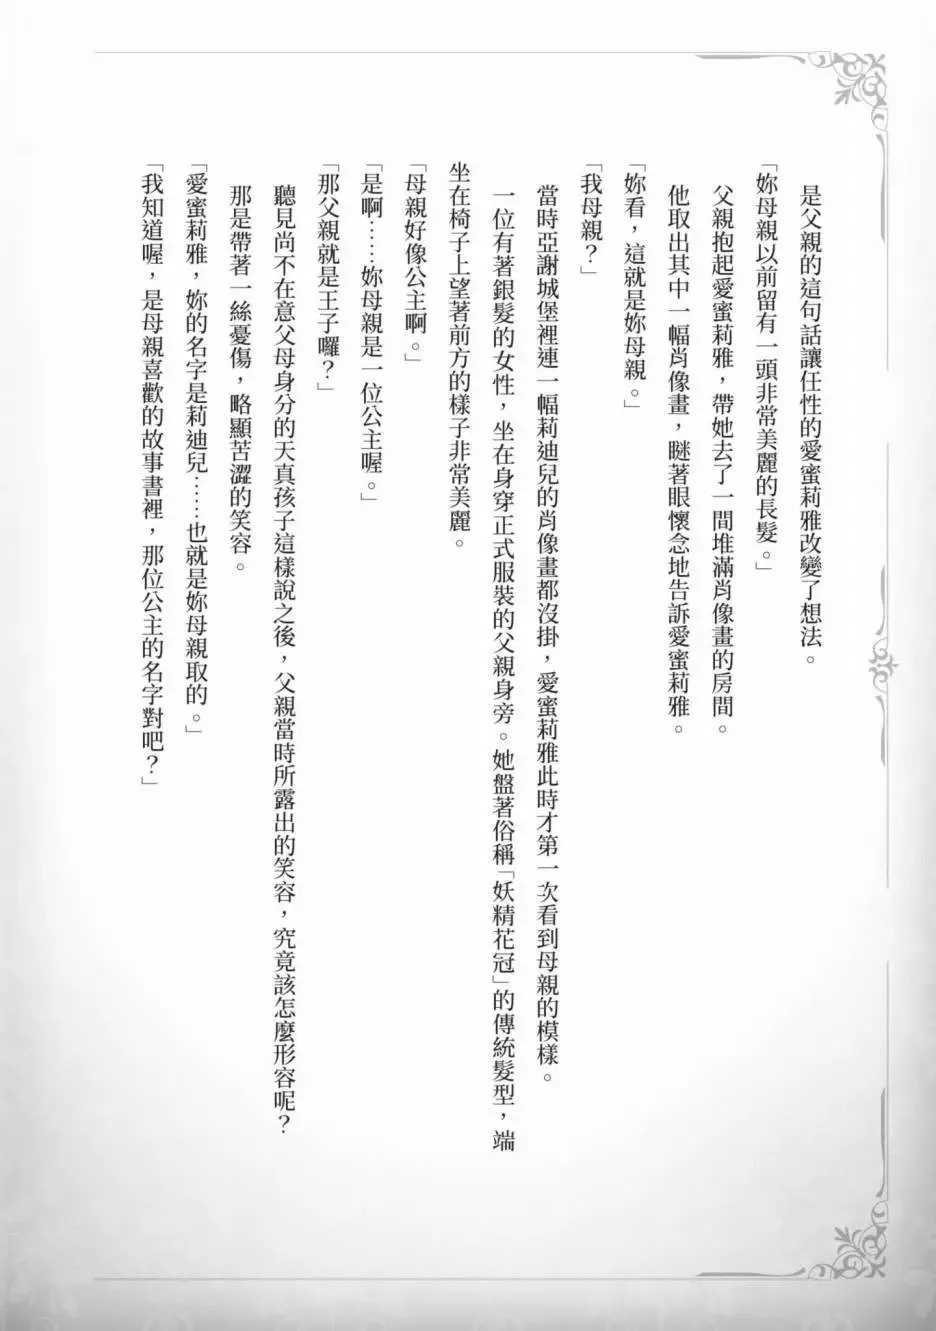 是父親的這句話讓任性的愛蜜莉雅改變了想法。
「妳母親以前留有一頭非常美麗的長髮。」
父親抱起愛蜜莉雅，帶她去了一間堆滿肖像畫的房間。
他取出其中一幅肖像畫，瞇著眼懷念地告訴愛蜜莉雅。
「妳看，這就是妳母親。」
「我母親？」
當時亞謝城堡裡連一幅莉迪兒的肖像畫都沒掛，愛蜜莉雅此時才第一次看到母親的模樣。
一位有著銀髮的女性，坐在身穿正式服裝的父親身旁。她盤著俗稱「妖精花冠」的傳統髮型，端
坐在椅子上望著前方的樣子非常美麗。
「母親好像公主啊。」
「是啊……妳母親是一位公主喔。」
「那父親就是王子囉？」
聽見尚不在意父母身分的天真孩子這樣說之後，父親當時所露出的笑容，究竟該怎麼形容呢？
那是帶著一絲憂傷，略顯苦澀的笑容。
「愛蜜莉雅，妳的名字是莉迪兒……也就是妳母親取的。」
「我知道喔，是母親喜歡的故事書裡，那位公主的名字對吧？」